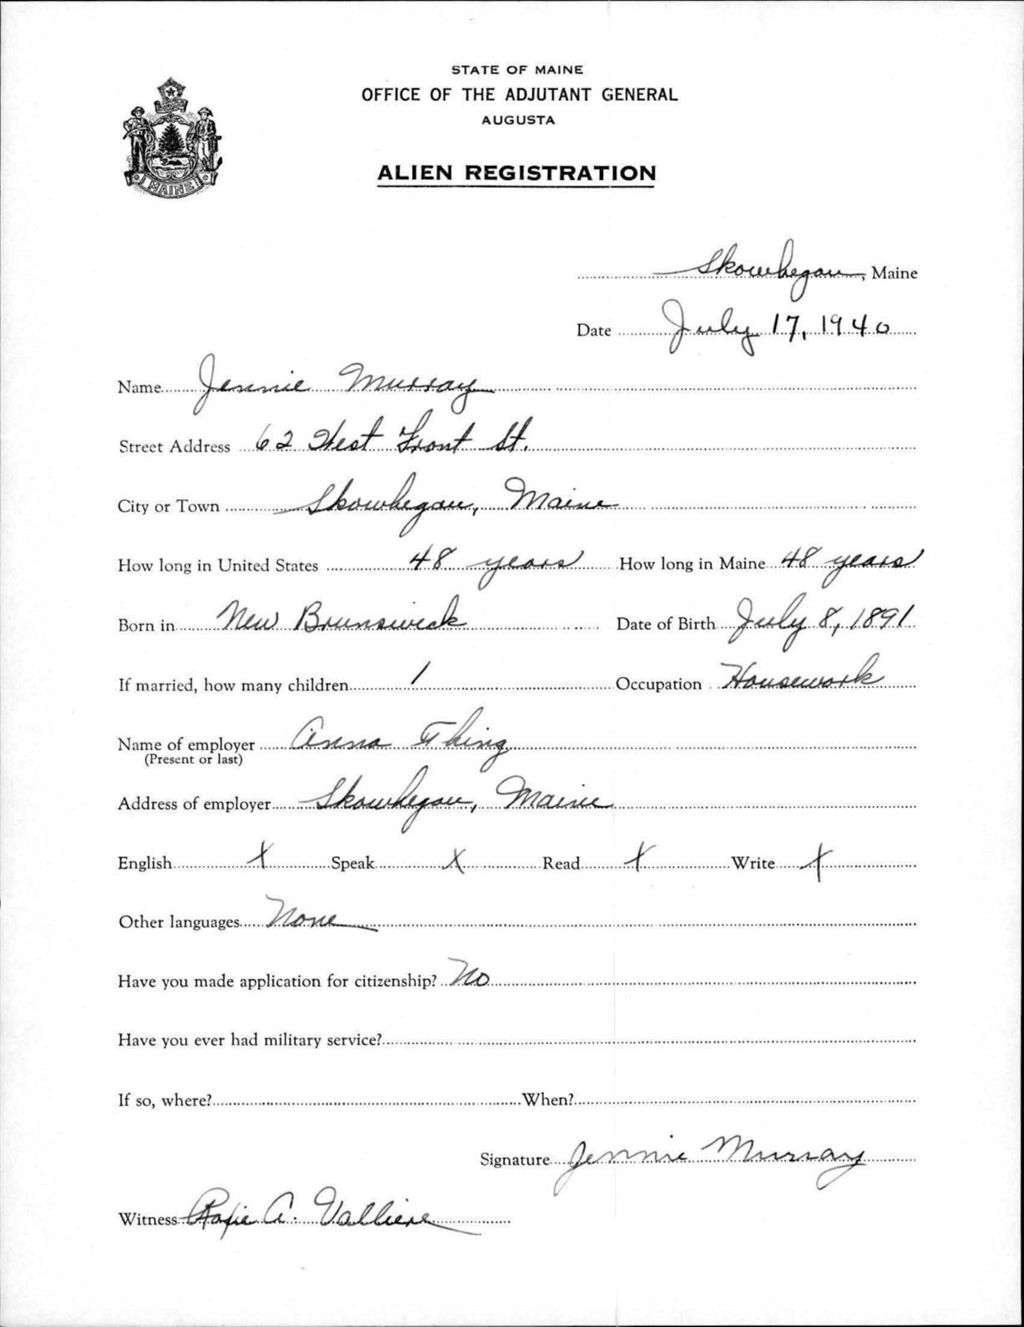 STATE OF MAINE
OFFICE OF THE ADJUTANT GENERAL
AUGUSTA
ALIEN REGISTRATION
MAINE
Skowhegan, Maine
Date July 17, 1940
Name Jennie Murray
Street Address 62 West Front St.
City or Town Skowhegan, Maine
How long in United States 48 years How long in Maine 48 years
Born in New Brunswick Date of Birth July 8, 1891
If married, how many children 1 Occupation Housework
Name of employer Anna Thing
(Present or last)
Address of employer Skowhegan, Maine
English X Speak X Read X Write X
Other languages None
Have you made application for citizenship? No
Have you ever had military service?
If so, where? When?
Signature Jennie Murray
Witness A. Valliere